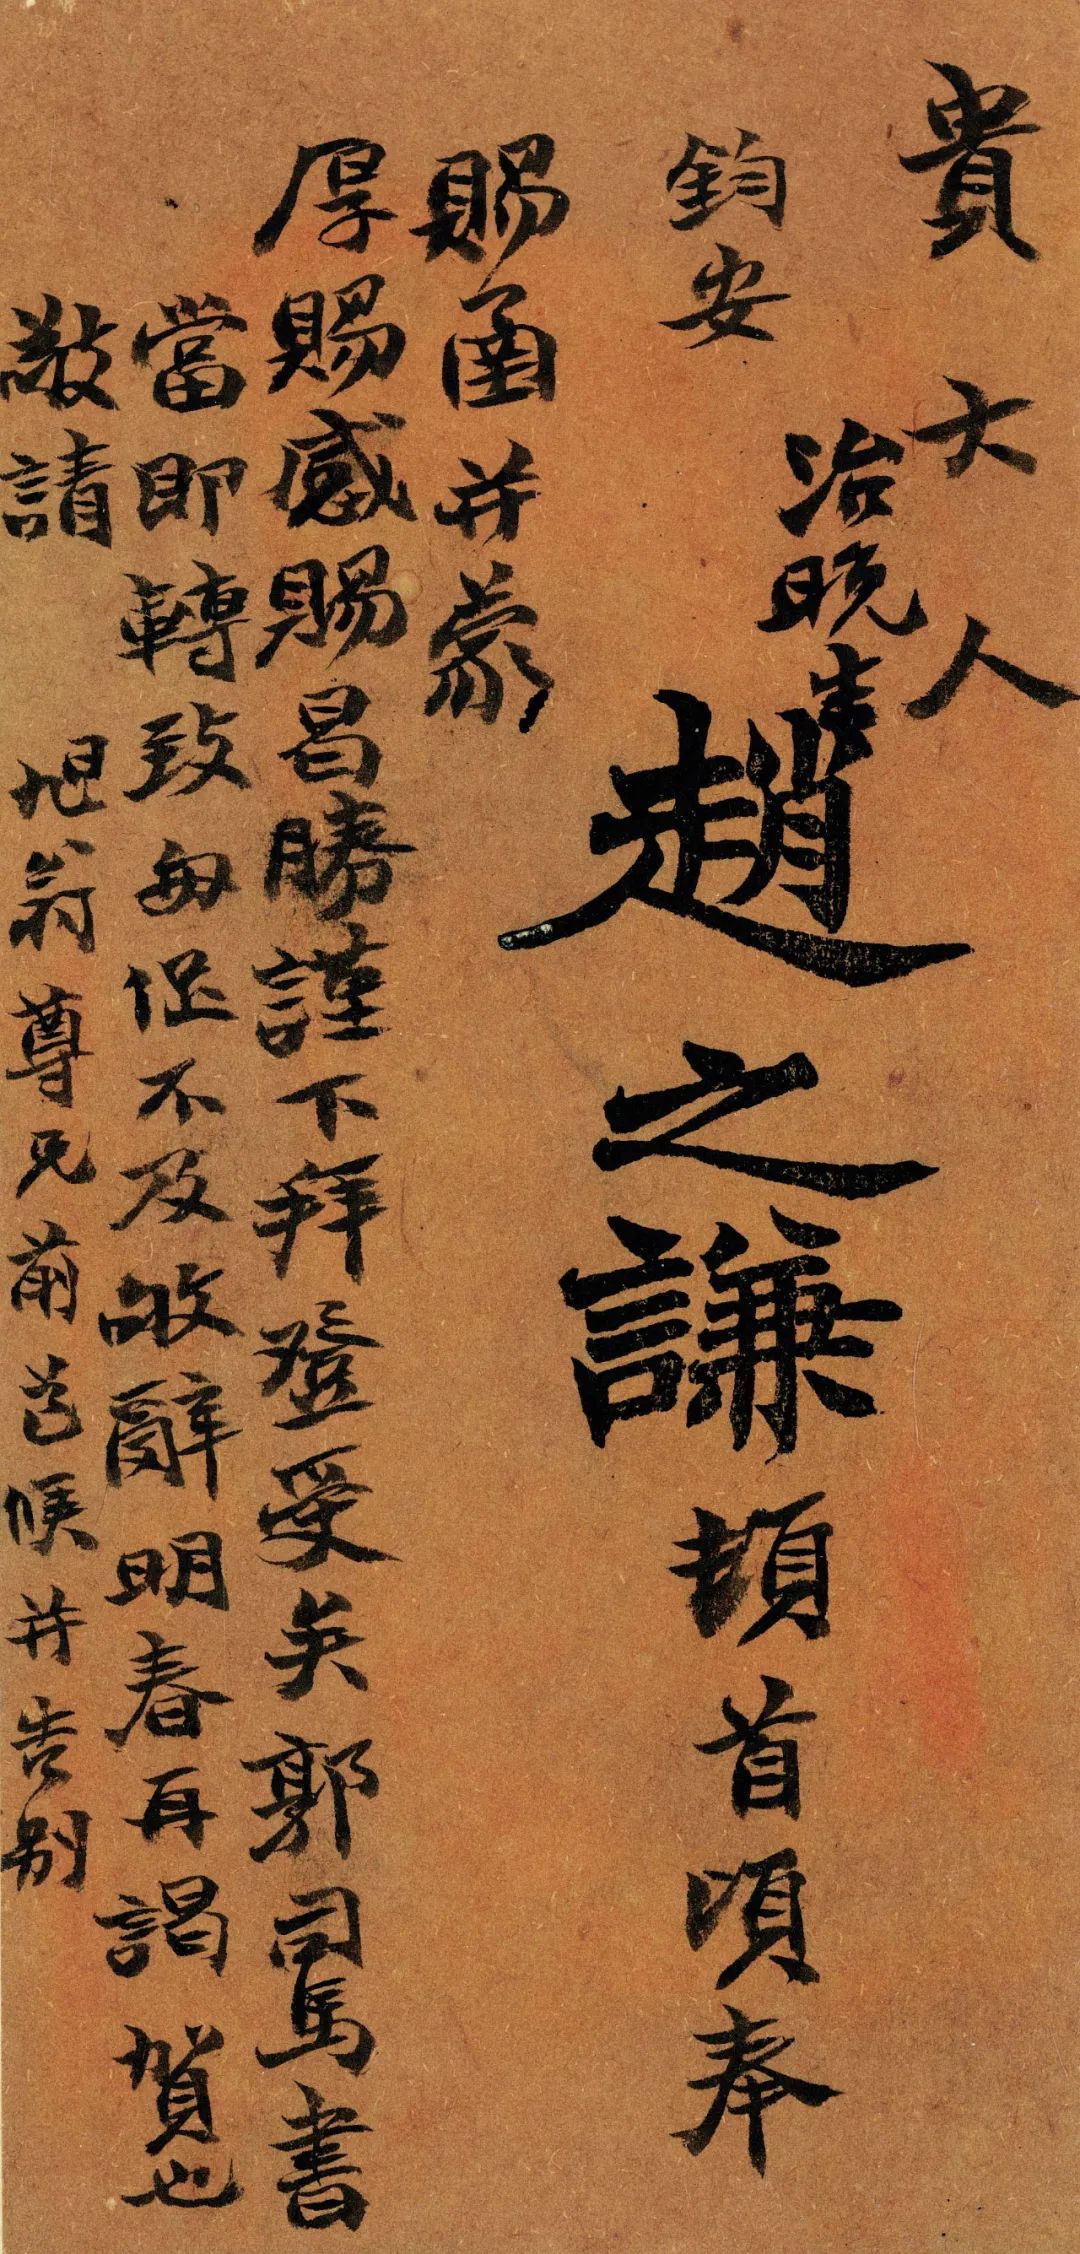 貴大人
鈞安
治晚生趙之謙頓首頃奉
賜函并蒙
厚賜感賜昌勝謹下拜登受矣郭司馬書
當即轉致匆促不及敬辭明春再謁賀也
敬請
旭翁尊兄前道候并告別